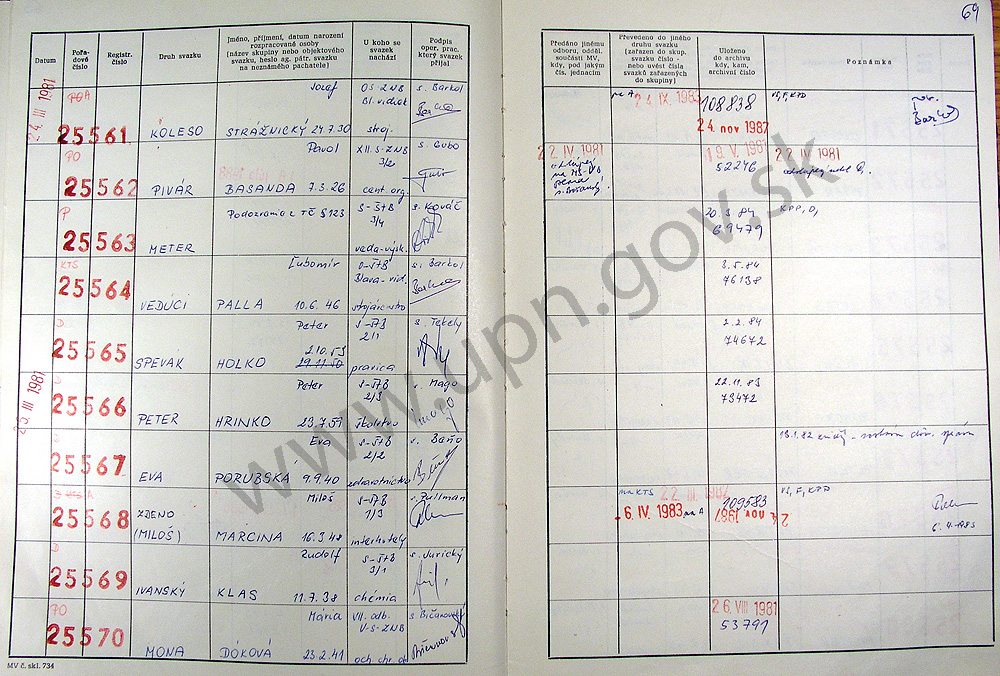 64
Datum
Pořa-
dové
číslo
Registr.
číslo
Druh svazku
Jméno, příjmení, datum narození
rozpracované osoby
(název skupiny nebo objektového
svazku, heslo ag. pátr. svazku
na neznámého pachatele)
U koho se
svazek
nachází
Podpis
oper. prac.
který svazek
přijal
Předáno jinému
odboru, odděl.
součásti MV,
kdy, pod jakým
čís. jednacím
Převedeno do jiného
druhu svazku
(zařazen do skup.
svazku číslo -
nebo uvést čísla
svazků zařazených
do skupiny)
Uloženo
do archivu
kdy, kam,
archivní číslo
Poznámka
24. III 1981
25561
KOLESO
Jozef
STRÁŽNICKÝ 24.7.30
OS ZNB
stroj.
s. Barkol
na A
24. IX. 1983
108838
24. nov 1987
PO
25562
PIVÁR
Pavol
BASANDA 7.3.26
XII. S-ZNB
3/2
cent. org.
s. Gubo
22 IV. 1981
19. V. 1981
52246
22 IV 1981
P
25563
METER
Podozrenie z TČ § 123
S-ŠtB
3/4
veda-výsk.
s. Kováč
20.3.84
69479
KTS
25564
VEDÚCI
Ľubomír
PALLA 10.6.46
strojárenstvo
s. Barkol
3.5.84
76138
D
25565
SPEVAK
Peter
2.10.53
HOLKO 29.11.50
S-ŠtB
2/1
pravica
s. Tekely
2.2.84
74672
25. III 1981
D
25566
PETER
Peter
HRINKO 23.7.59
S-ŠtB
2/3
školstvo
s. Mago
22.11.83
73472
D
25567
EVA
Eva
PORUBSKÁ 9.9.40
S-ŠtB
2/2
zdravotníctvo
s. Baňo
25568
ZDENO
(MILOŠ)
Miloš
MARCINA 16.3.48
S-ŠtB
1/3
interhotely
s. Pullman
na KTS
22. III. 1982
-6. IV. 1983 na A
109583
24. nov 1987
6.4.1983
D
25569
IVANSKÝ
Rudolf
KLAS 11.7.38
S-ŠtB
3/1
chémia
s. Jurický
PO
25570
MONA
Mária
DÓKOVÁ 23.2.41
VII. odb.
V-S-ZNB
och. chr. ob.
s. Bičanovský
26. VIII 1981
53791
MV č. skl. 734
www.upn.gov.sk